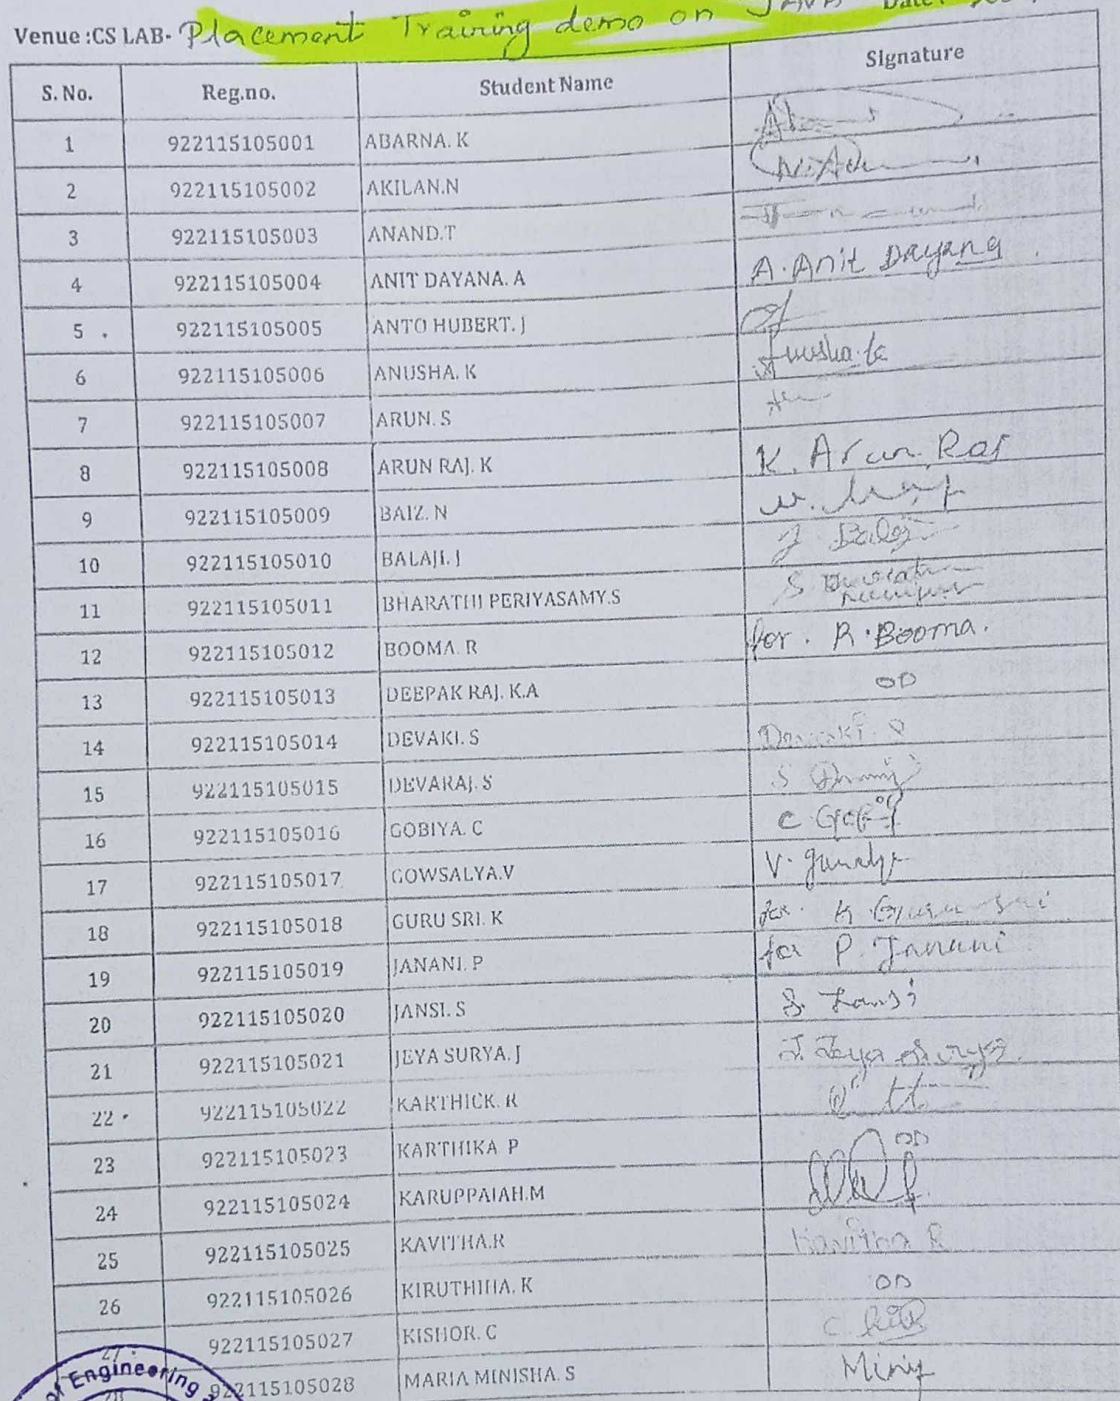 Venue :CS LAB- Placement Training demo on JAVA Date:
S. No. Reg.no. Student Name Signature
1 922115105001 ABARNA. K
2 922115105002 AKILAN.N N.
3 922115105003 ANAND.T
4 922115105004 ANIT DAYANA. A A. Anit Dayana
5 922115105005 ANTO HUBERT. J
6 922115105006 ANUSHA. K Anusha.k
7 922115105007 ARUN. S
8 922115105008 ARUN RAJ. K K. Arun Raj
9 922115105009 BAIZ. N
10 922115105010 BALAJI. J J Balaji
11 922115105011 BHARATHI PERIYASAMY.S S
12 922115105012 BOOMA. R for. R. Booma.
13 922115105013 DEEPAK RAJ. K.A OD
14 922115105014 DEVAKI. S Devaki. S
15 922115105015 DEVARAJ. S S
16 922115105016 GOBIYA. C C
17 922115105017 GOWSALYA.V V.
18 922115105018 GURU SRI. K for. K Guru Sri
19 922115105019 JANANI. P for P. Janani
20 922115105020 JANSI. S S. Jansi
21 922115105021 JEYA SURYA. J J. Jeya Surya
22 922115105022 KARTHICK. R
23 922115105023 KARTHIKA P OD
24 922115105024 KARUPPAIAH.M
25 922115105025 KAVITHA.R Kavitha R
26 922115105026 KIRUTHIHA. K OD
27 922115105027 KISHOR. C C
28 922115105028 MARIA MINISHA. S
of Engineering